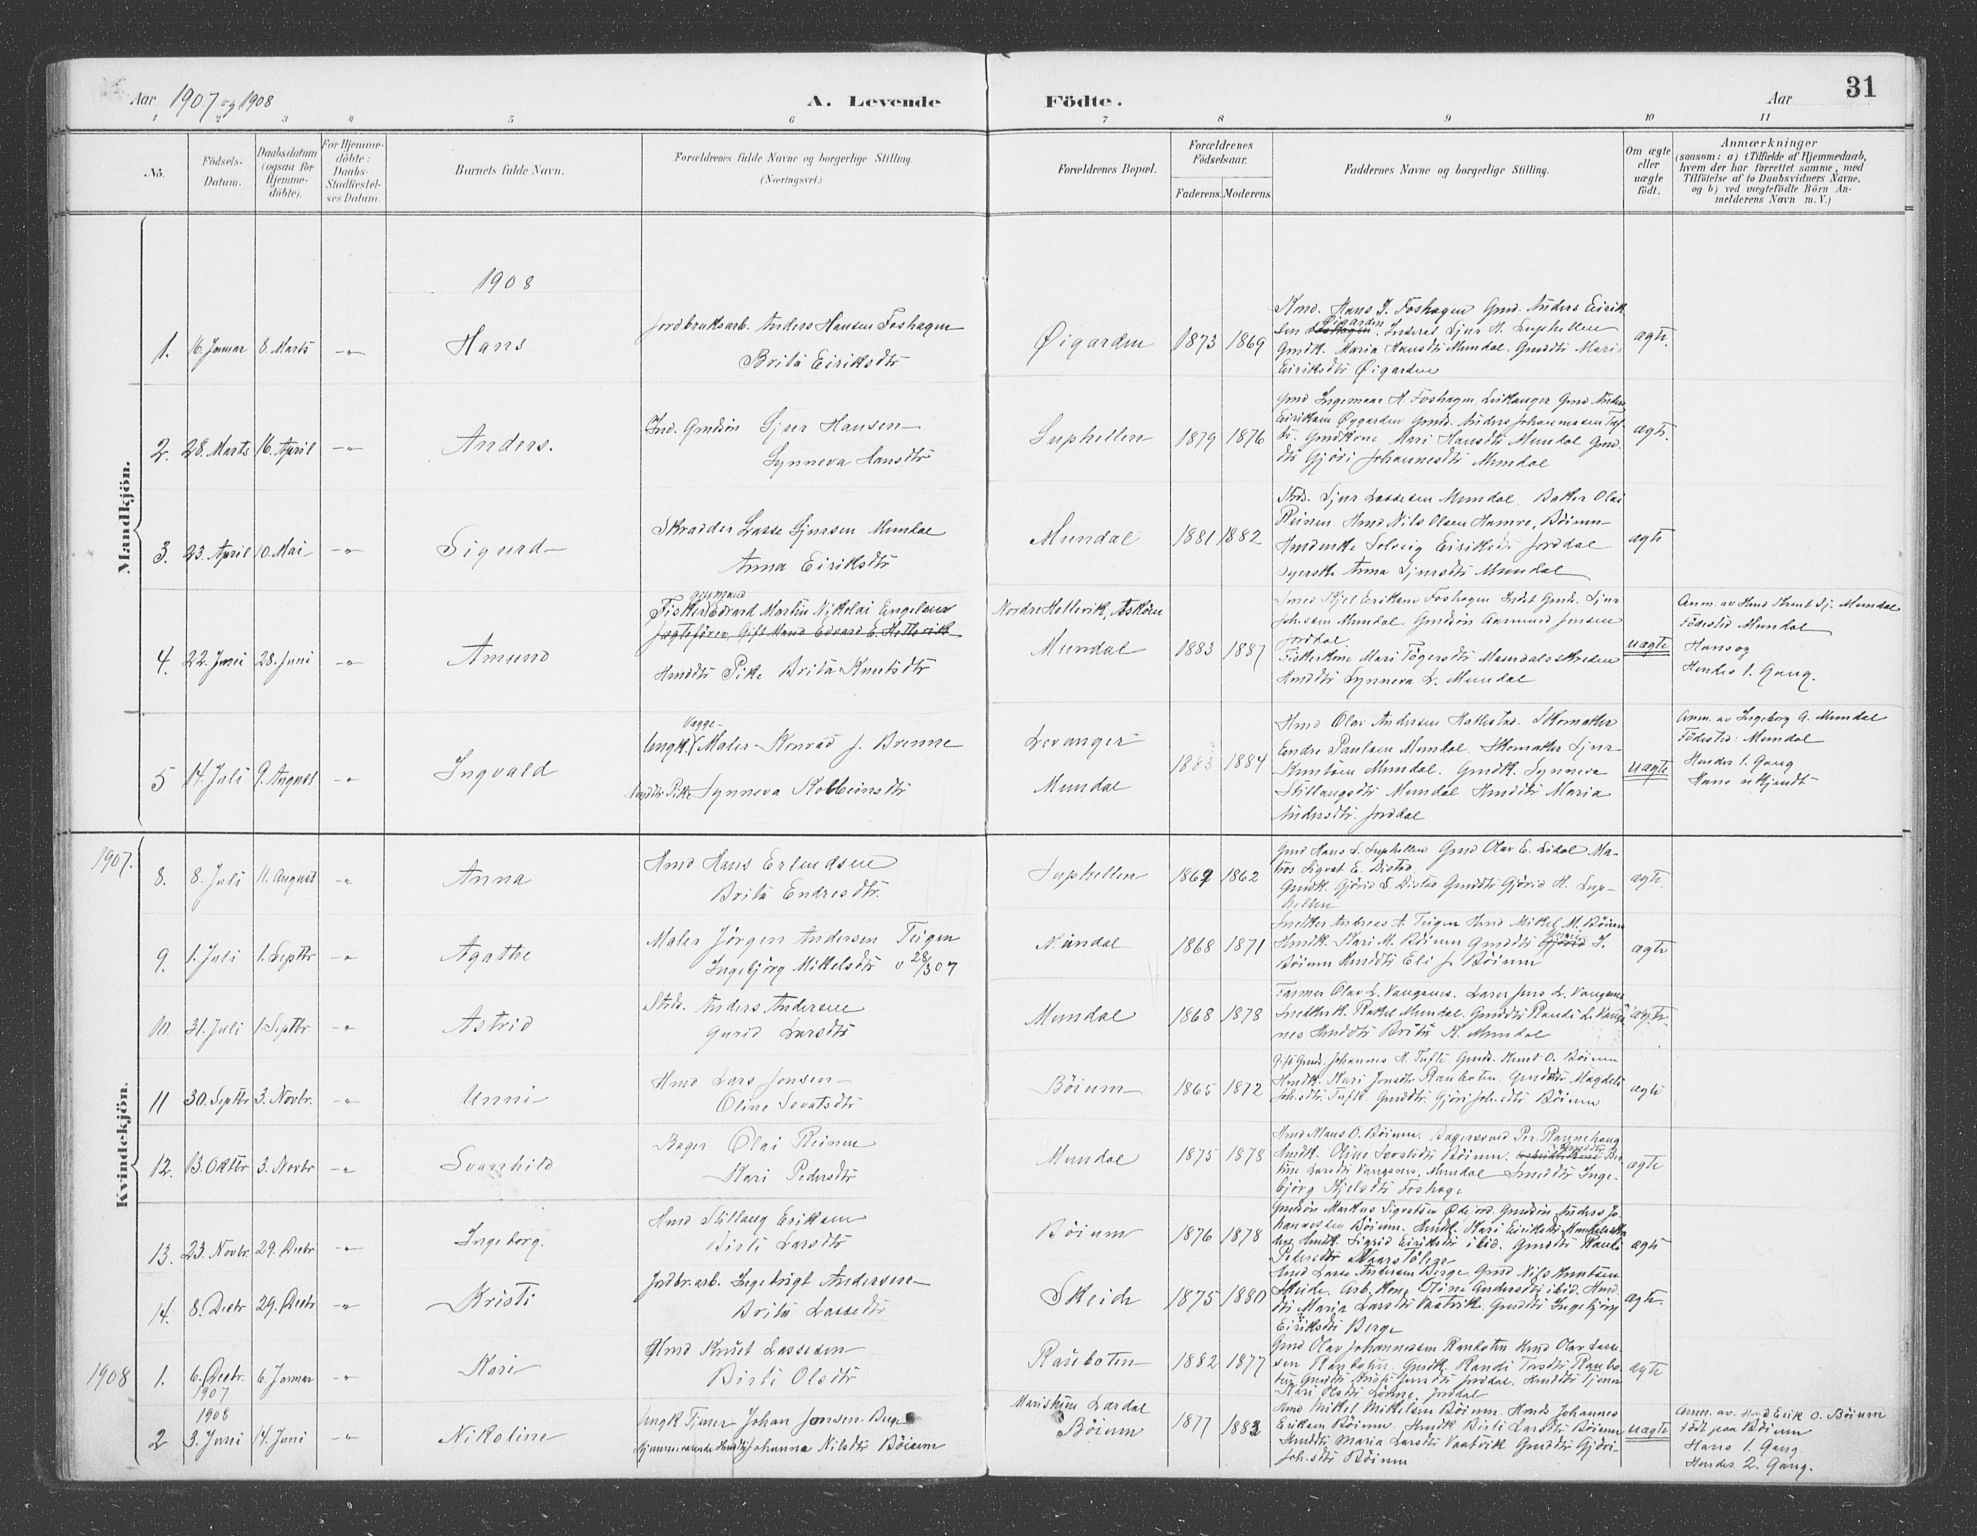 Aar 1907 og 1908
A. Levende Födte.
Aar
31
1 2 3 4 5 6 7 8 9 10 11
No.
Födsels-Datum.
Daabsdatum (ogsaa for Hjemmedöbte).
For Hjemmedöbte: Daabs-Stadfæstelses Datum.
Barnets fulde Navn.
Forældrenes fulde Navne og borgerlige Stilling. (Næringsvei.)
Forældrenes Bopæl.
Forældrenes Födselsaar.
Faderens. Moderens.
Faddernes Navne og borgerlige Stilling.
Om ægte eller uægte födt.
Anmærkninger
(saasom: a) i Tilfælde af Hjemmedaab, hvem der har forrettet samme, med Tilföielse af to Daabsvidners Navne, og b) ved uægtefödte Börn Anmelderens Navn m. V.)
Mandkjön.
1908
1. 16. Januar 8. Marts -"- Hans
Jordbruksarb. Anders Hansen Foshagen
Brita Eiriksdtr
Øigarden 1873 1869
Kmd. Hans J. Foshagen Gmd. Anders Eirik
sen Øigarden. Inderst Sjur H. Suphellen
Gmdk. Maria Hansdtr Mundal. Gmddtr Mari
Eiriksdtr Øigarden
ægte.
2. 28. Marts 16. April -"- Anders.
Ind. Gmdsön Sjur Hansen
Synneva Hansdtr
Suphellen 1879 1876
Gmd Ingemaar H. Foshagen Leikanger Gmd Anders
Eiriksen Øygarden Gmds. Anders Johannessen Tuf
te. Gmdkone Mari Hansdtr Mundal Gmd
dtr Gjöri Johannesdtr Mundal
ægte.
3. 23. April 10. Mai -"- Sigurd
Skrædder Lasse Sjursen Mundal
Anna Eiriksdtr
Mundal 1881 1882
Strds. Sjur Lassesen Mundal. Baker Olai
Reinen Hmd Nils Olsen Hamre, Böium
Hmdenke Solveig Eiriksdtr Jordal
Syerske Anna Sjursdtr Mundal
ægte
4. 22. Juni 28. Juni -"- Amund
gift Mand
Fisker Edvard Martin Nikolai Engelsen
Jægtefører, Gift Mand Edvard E. Hellevik
Hmddtr Pike Brita Knutsdtr
Nordre Hellevik, Asköen
Mundal 1883 1887
Smed Kjel Eiriksen Foshagen Indst Gmds. Sjur
Johssen Mundal. Gmdsön Aamund Jensen
Jordal
Fiskerkone Mari Tögersdtr Maurdalsskreden
Hmddtr Synneva L. Mundal
uægte
Anm. av Hmd Knut Sj. Mundal
Födested Mundal
Hans og
Hendes 1. Gang.
5 14. Juli 9. August -"- Ingvald
Vagge-
Ungk. Maler Konrad J. Brenne
Hmddtr Pike Synneva Kolbeinsdtr
Levanger
Mundal 1883 1884
Hmd Olav Andersen Hattestad. Skomaker
Endre Paulsen Mundal. Skomaker Sjur
Knutsen Mundal. Gmdk. Synneva
Stillaugsdtr Mundal Hmddtr Maria
Andersdtr. Jordal
uægte
Anm. av Ingeborg A. Mundal
Födested Mundal
Hendes 1. Gang
Hans ukjendt
Kvindekjön.
1907.
8. 8. Juli 11. August -"- Anna
Hmd Hans Erlendsen
Brita Endresdtr.
Suphellen 1869 1862
Gmd Hans S. Suphellen Gmd Olav E. Lidal Ma-
tros Sigvat E. Distad.
Gmdk. Gjörid E. Distad Gmddtr Gjörid H. Sup-
hellen
ægte.
9. 1. Juli 1. Septbr -"- Agathe
Maler Jörgen Andersen Teigen
Ingebjörg Mikkelsdtr v 28/3 07
Mundal 1868 1871
Snedker Andreas A. Teigen Hmd Mikkel M. Böium
Hmdk. Kari M. Böium Gmddtr S.
Böium Hmddtr Eli J. Böium
ægte
10. 31. Juli 1. Septbr. -"- Astrid
Strds. Anders Andersen
Gurid Larsdtr
Mundal 1868 1878
Farmer Olav L. Vangsnes. Lærer Jens L. Vangsnes
Snedkerk. Rakel Mundal. Gmddtr Randi L. Vangs
nes Hmddtr Brita K. Mundal
ægte.
11 30. Septbr 3. Novbr. -"- Unni
Hmd Lars Jensen
Oline Sevatsdtr
Böium 1865 1872
Gift Gmd. Johannes K. Tufte. Gmd. Knut O. Böium
Hmdk. Kari Jensdtr Rauboten. Gmddtr Magdeli
Johsdtr. Tufte Gmddtr. Gjöri Johsdtr Böium
ægte
12. 13. Oktbr 3. Novbr -"- Svanhild
Bager Olai Reinen
Kari Pedersdtr
Mundal 1875 1878
Hmd Klaus O. Böium. Bagersvend Per Raunehaug
Hmdk. Oline Sevatsdtr Böium.
Larsdtr Vangsnes, Mundal Smeddtr Inge-
björg Kjelsdtr Foshage
ægte
13. 23. Novbr 29. Decbr -"- Ingeborg.
Hmd Stillaug Eriksen
Birti Larsdtr
Böium 1876 1878
Gmdsön Markus Sigvatsen Ødejord. Gmdsön Anders Jo-
hannessen Böium. Hmdk. Kari Eiriksdtr
Hmdk. Sigrid Eiriksdtr ibid. Gmddtr Randi
Pedersdtr
ægte
14. 8. Decbr 29. Decbr -"- Kristi
Jordbr.arb. Ingebrigt Andersen
Brita Lassedtr
Skeide 1875 1880
Hmd Lasse Andersen Berge. Gmd Nils Knutsen
Skeide. Arb. Kone Oline Andersdtr ibid. Hmd.
dtr Maria Larsdtr Vaatvik. Gmddtr Ingebjörg
Eiriksdtr Berge
ægte.
1908
1. 6. Decbr. 1907 6. Januar -"- Kari
Gmd Knut Lassesen
Birti Olsdtr
Rauboten 1882 1877
Gmd Olav Johannessen Rauboten Hmd Olav Lasse-
sen Rauboten. Gmdk. Randi Torsdtr Raubo-
ten Gmddtr Jensdtr Jordal. Hmddtr
Kari Olsdtr Jordal
ægte
2 1908 3. Juni 14. Juni -"- Nikoline
Ungk Tjener Johan Jonsen Berge
Hjemmeværende Hmddtr Johanna Nilsdtr Böium
Maristuen Lærdal
Böium 1877 1883
Hmd Mikkel Mikkelsen Böium. Hmd Johannes
Eriksen Böium. Hmdk Birti Larsdtr Böium
Hmddtr Maria Larsdtr Vaatvik Gmddtr Gjöri
Johsdtr Böium
uægte
Anm. av. Hmd Erik O. Böium
Födt paa Böium
Hans 1. Gang
Hendes 2. Gang.